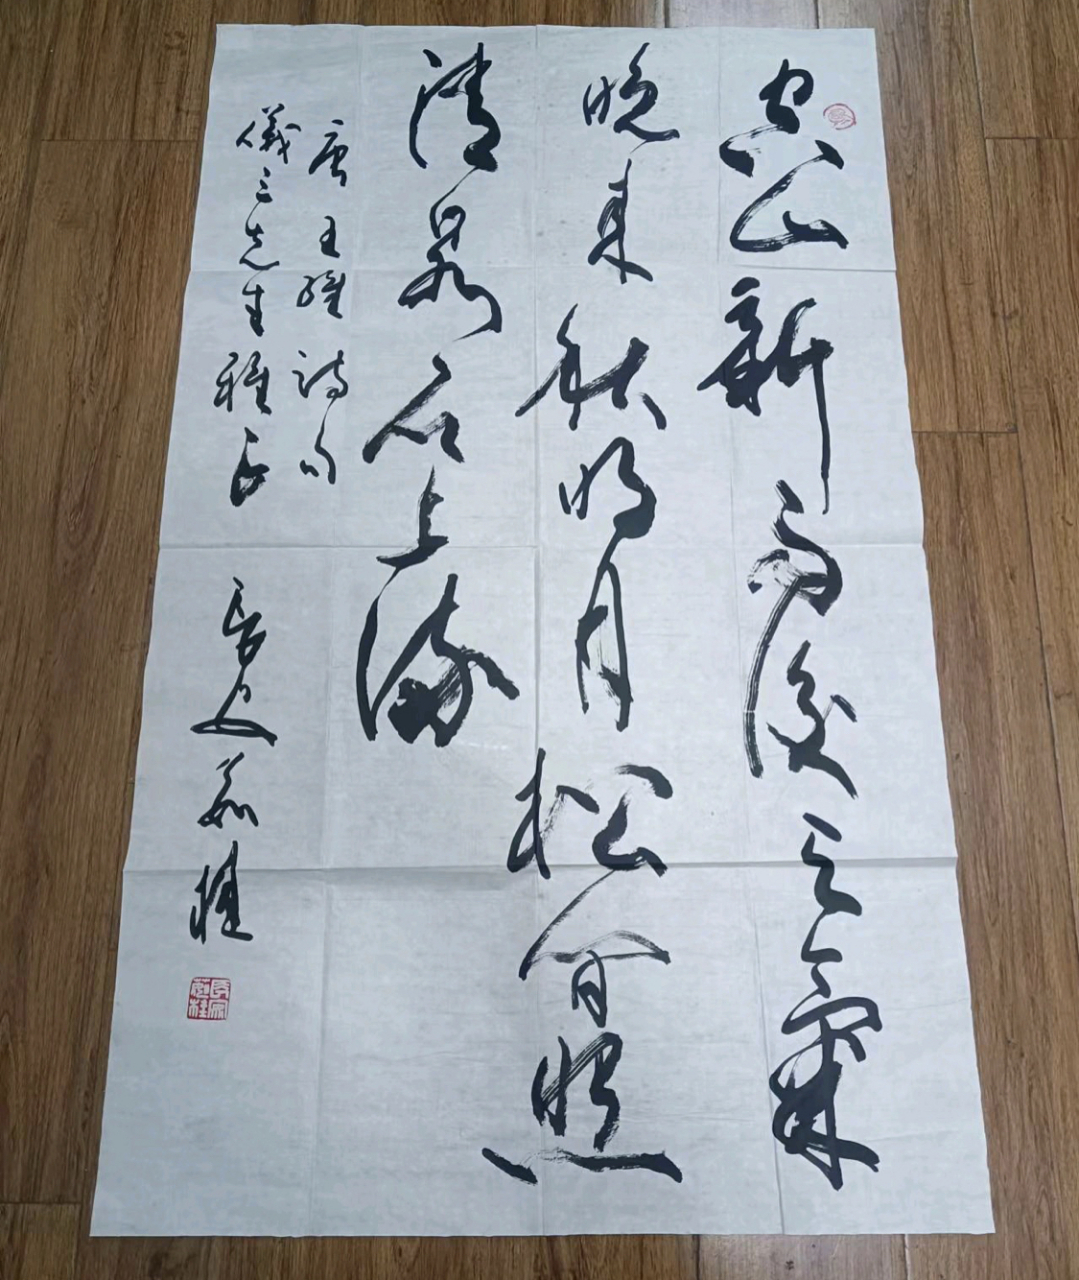 空山新雨後天氣
晚來秋明月松間照
清泉石上流
唐王維詩句
儀三先生雅正 長安茹桂